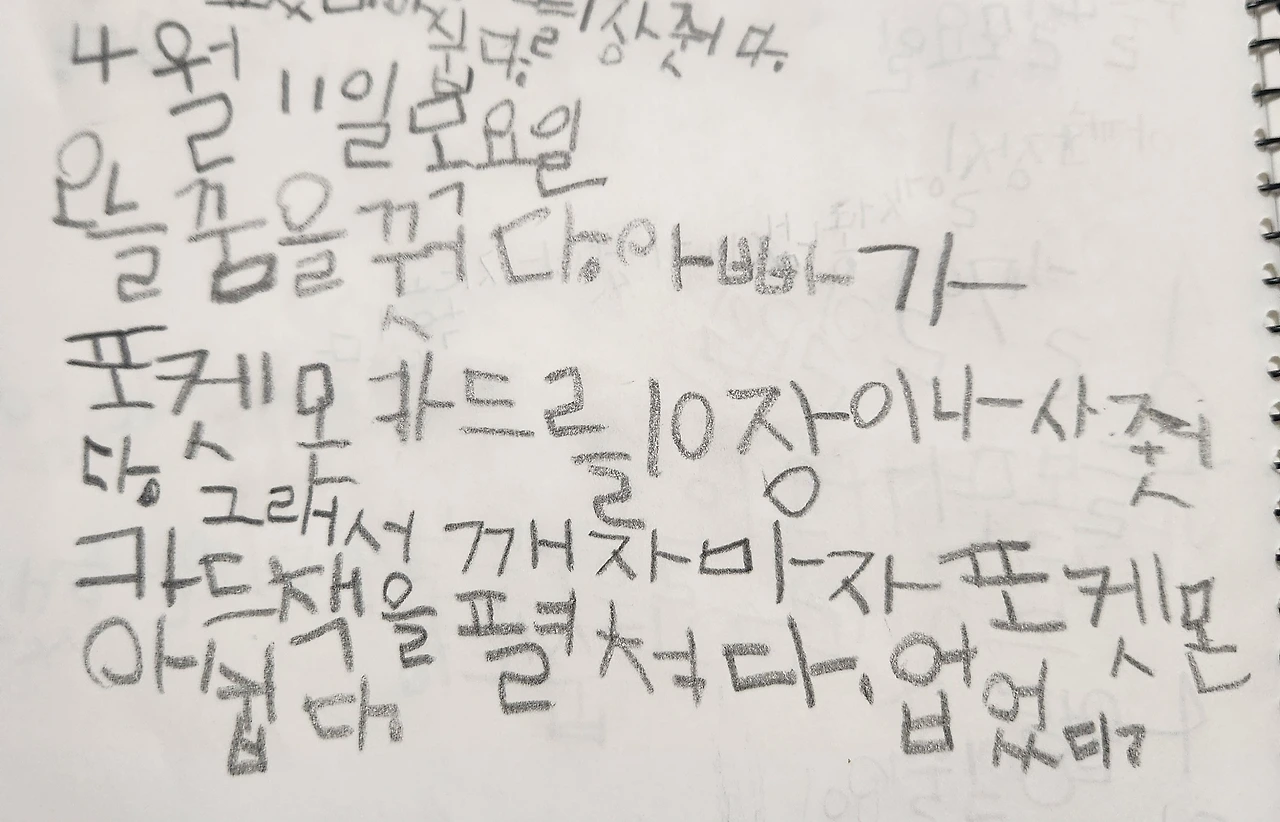 상줬다.
4월 11일 모요일
오늘 꿈을 꿨다. 아빠가
포켓모 카드를 10장이나 사줬
다. 그래서
카드책을 깨자마자 포켓몬
펼첫다. 업없다
아쉽다.